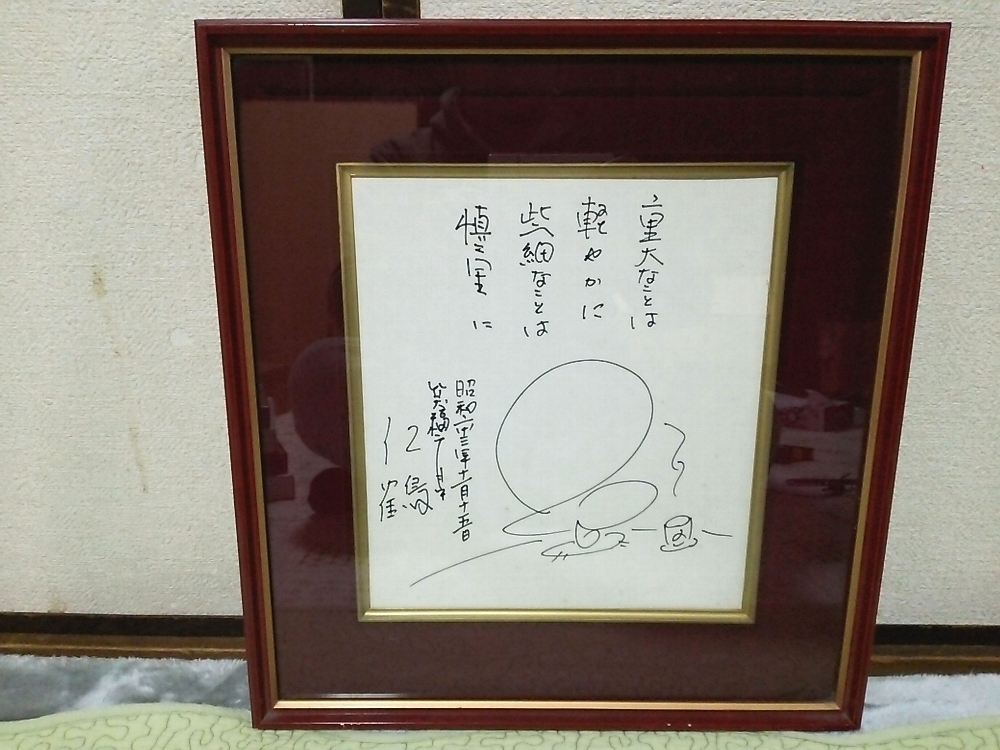 重大なことは
軽やかに
些細なことは
慎重に
昭和六十三年十二月十五日